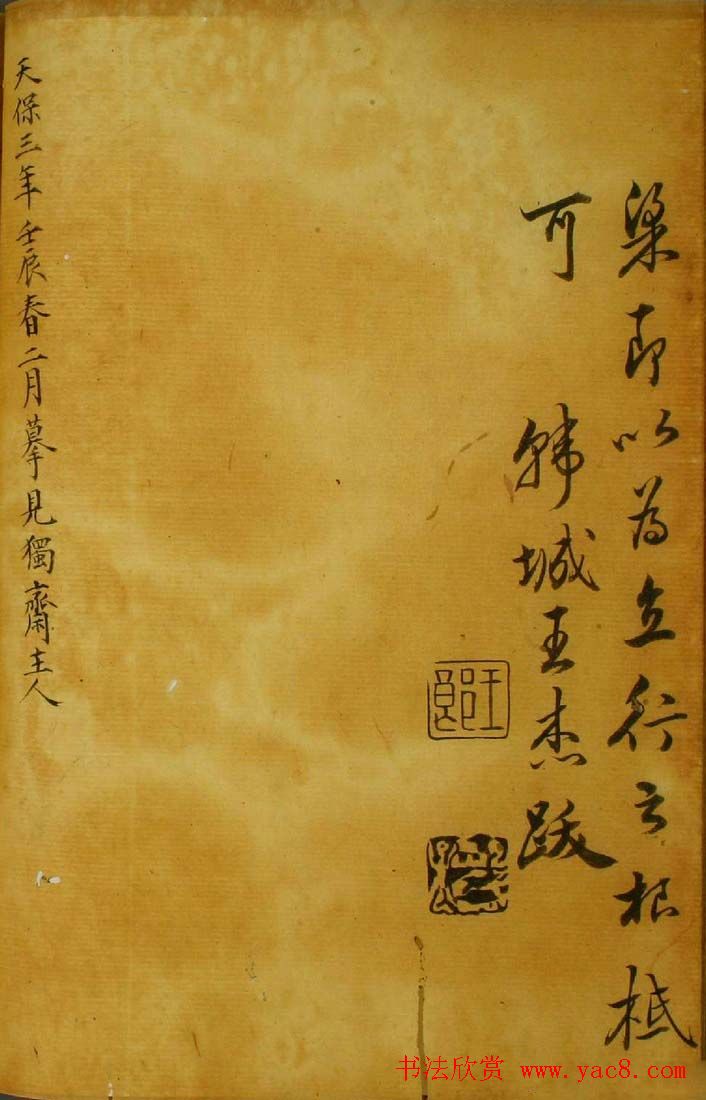 梁即以為立行之根柢
可 韓城王杰跋
天保三年壬辰春二月摹見獨齋主人
书法欣赏 www.yac8.com